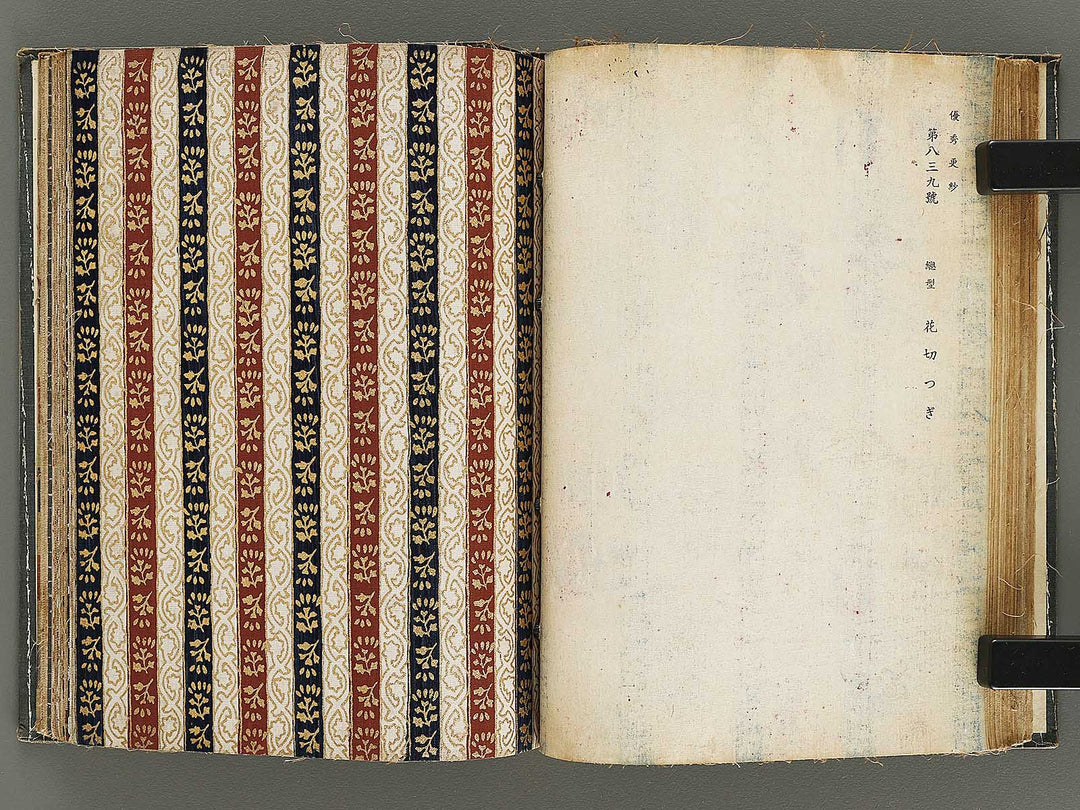 優秀更紗
第八三九號　　總型　花切つぎ